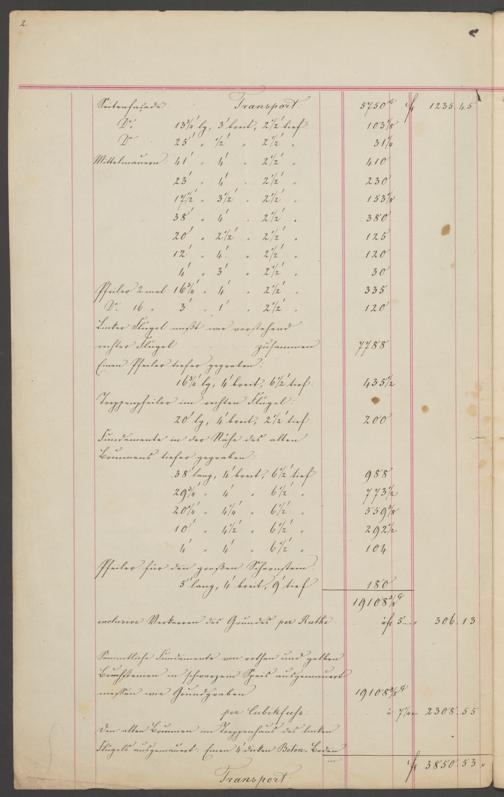 2
Seitenfaçade Transport 5750 f 1235.45
Do. 13¾' lg, 3' breit, 2½' tief 103⅛
Do. 25' " ½' " 2½' " 31¼
Mittelmauern 41' " 4' " 2½' " 410
23' " 4' " 2½' " 230
17½' " 3½' " 2½' " 153⅛
38' " 4' " 2½' " 380
20' " 2½' " 2½' " 125
12' " 4' " 2½' " 120
4' " 3' " 2½' " 30
Pfeiler 2 mal 16¾' " 4' " 2½' " 335
Do. 16 " 3' " 1' " 2½' " 120
Linker Flügel mißt wie vorstehend
rechter Flügel zusammen 7788
Einen Pfeiler tiefer gegraben
16¾' lg, 4' breit, 6½' tief 435½
Treppenpfeiler im rechten Flügel
20' lg, 4' breit, 2½' tief 200
Fundamente in der Nähe des alten
Brunnens tiefer gegraben
38' lang, 4' breit, 6½' tief 988
29¾' " 4' " 6½' " 773½
20¼' " 4¼' " 6½' " 559
10' " 4½' " 6½' " 292½
4' " 4' " 6½' " 104
Pfeiler für den großen Schornstein
5' lang, 4' breit, 9' tief 180
19108
inclusive Verkarren des Grundes per Ruthe 306.13
Sämmtliche Fundamente von rothen und gelben
Bruchsteinen in schwarzem Speis ausgemauert
messen wie Grundgraben 19108
per Cubikfuß 2308.55
Den alten Brunnen im Treppenhaus des linken
Flügels ausgemauert. Einen dicken Beton-Boden
f 3850.53
Transport